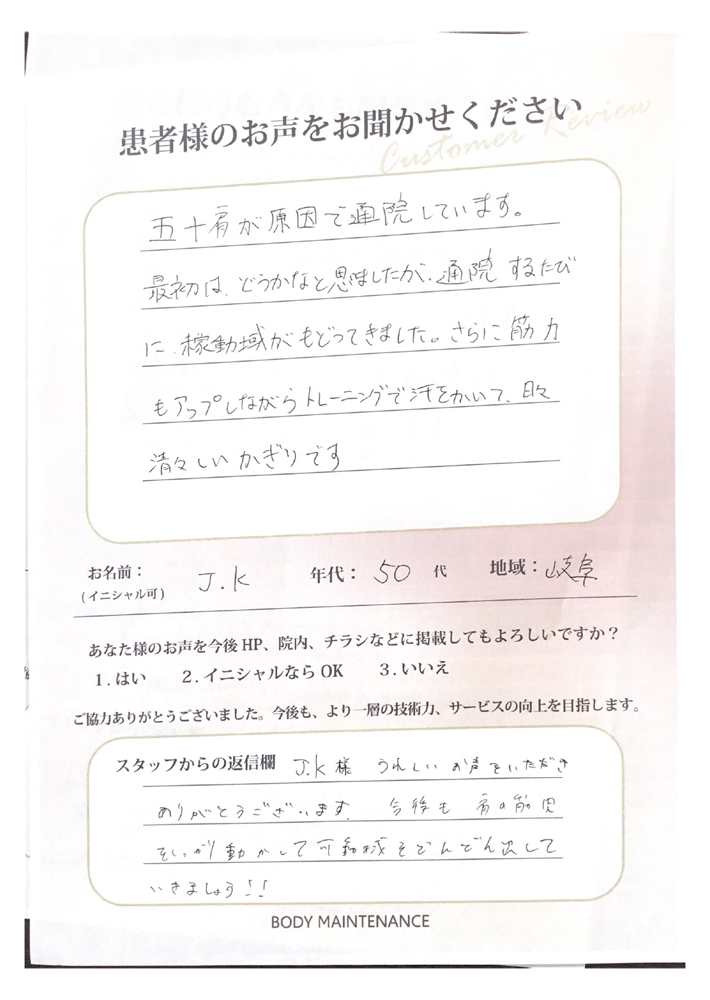 患者様のお声をお聞かせください
Customer Review
五十肩が原因で通院しています。
最初は、どうかなと思いましたが、通院するたび
に、稼動域がもどってきました。さらに筋力
もアップしながらトレーニングで汗をかいて、日々
清々しいかぎりです
お名前：
(イニシャル可)
J.K 年代： 50 代 地域： 岐阜
あなた様のお声を今後HP、院内、チラシなどに掲載してもよろしいですか？
1.はい 2.イニシャルならOK 3.いいえ
ご協力ありがとうございました。今後も、より一層の技術力、サービスの向上を目指します。
スタッフからの返信欄 J.K様 うれしいお声をいただき
ありがとうございます。 今後も 肩の筋肉
をしっかり動かして可動域をどんどん出して
いきましょう!!
BODY MAINTENANCE